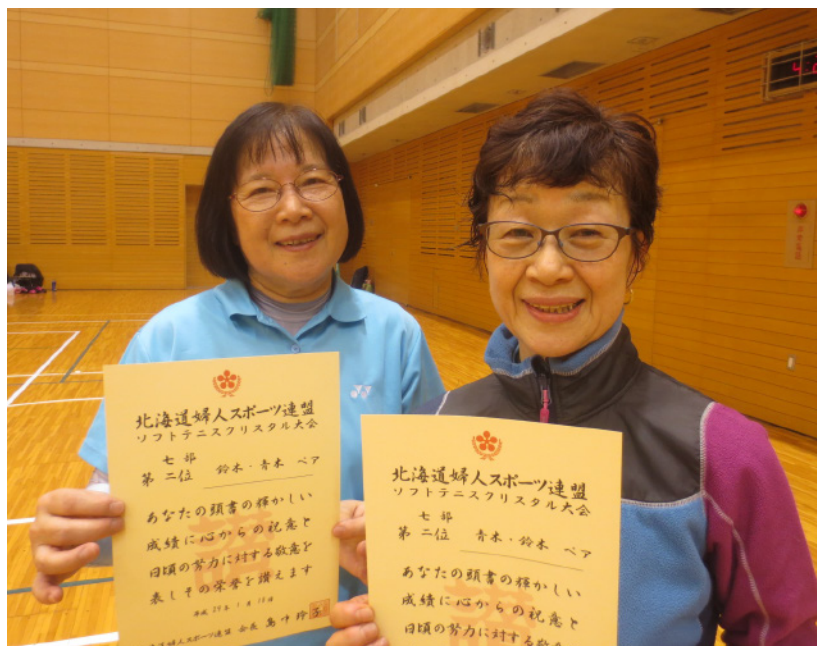 北海道婦人スポーツ連盟
ソフトテニスクリスタル大会
七部
第二位 鈴木・青木 ペア
あなたの頭書の輝かしい
成績に心からの祝意と
日頃の努力に対する敬意を
表しその栄誉を讃えます
平成28年1月18日
婦人スポーツ連盟 会長
北海道婦人スポーツ連盟
ソフトテニスクリスタル大会
七部
第二位 青木・鈴木 ペア
あなたの頭書の輝かしい
成績に心からの祝意と
日頃の努力に対する敬